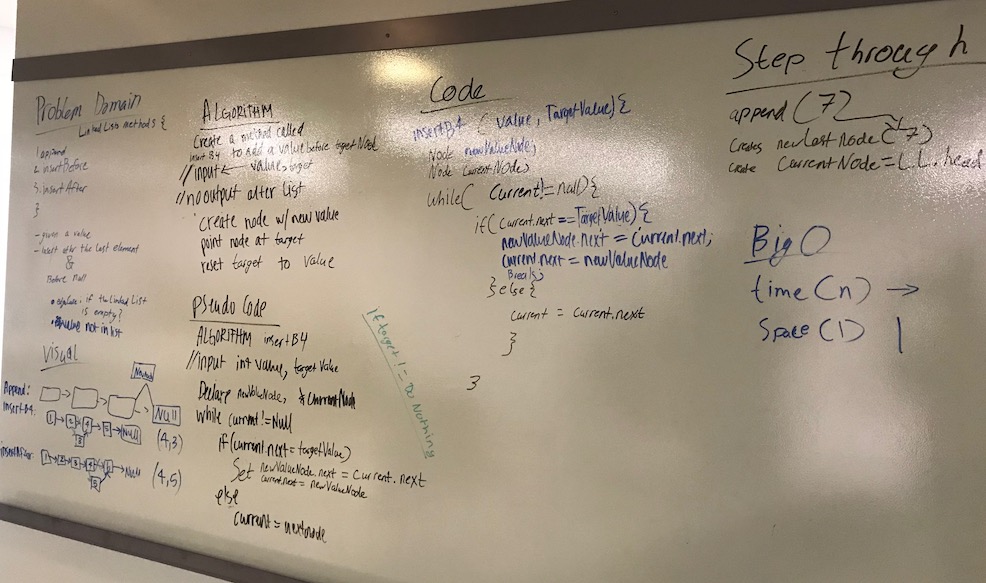 Problem Domain
Linked Lists methods {
1. append
2. insertBefore
3. insertAfter
}
- given a value
- insert after the last element
&
Before null
if the Linked List
is empty?
value not in list
Visual
Append:
Null
InsertB4:
1 2 4 5 Null
3
(4,3)
insertAfter
1 2 3 4 Null
5
(4,5)
ALGORITHM
Create a method called
insert B4 to add a value before target Node
//input ← value, target
//no output alter list
create node w/ new value
point node at target
reset target to value
Pseudo Code
ALGORITHM insertB4
//input int value, target Value
Declare newValueNode, & CurrentNode
while current != Null
if(current.next = targetValue)
Set newValueNode.next = Current.next
current.next = newValueNode
else
current = nextnode
If target != Do Nothing
Code
insertB4 ( value, TargetValue) {
Node newValueNode;
Node CurrentNode;
while( Current != null) {
if( Current.next == TargetValue) {
newValueNode.next = Current.next;
current.next = newValueNode
Break;
} else {
current = current.next
}
}
Step through
append (7)
Creates newLastNode (7)
Create CurrentNode = L.L. head
Big O
time (n) →
Space (1) |